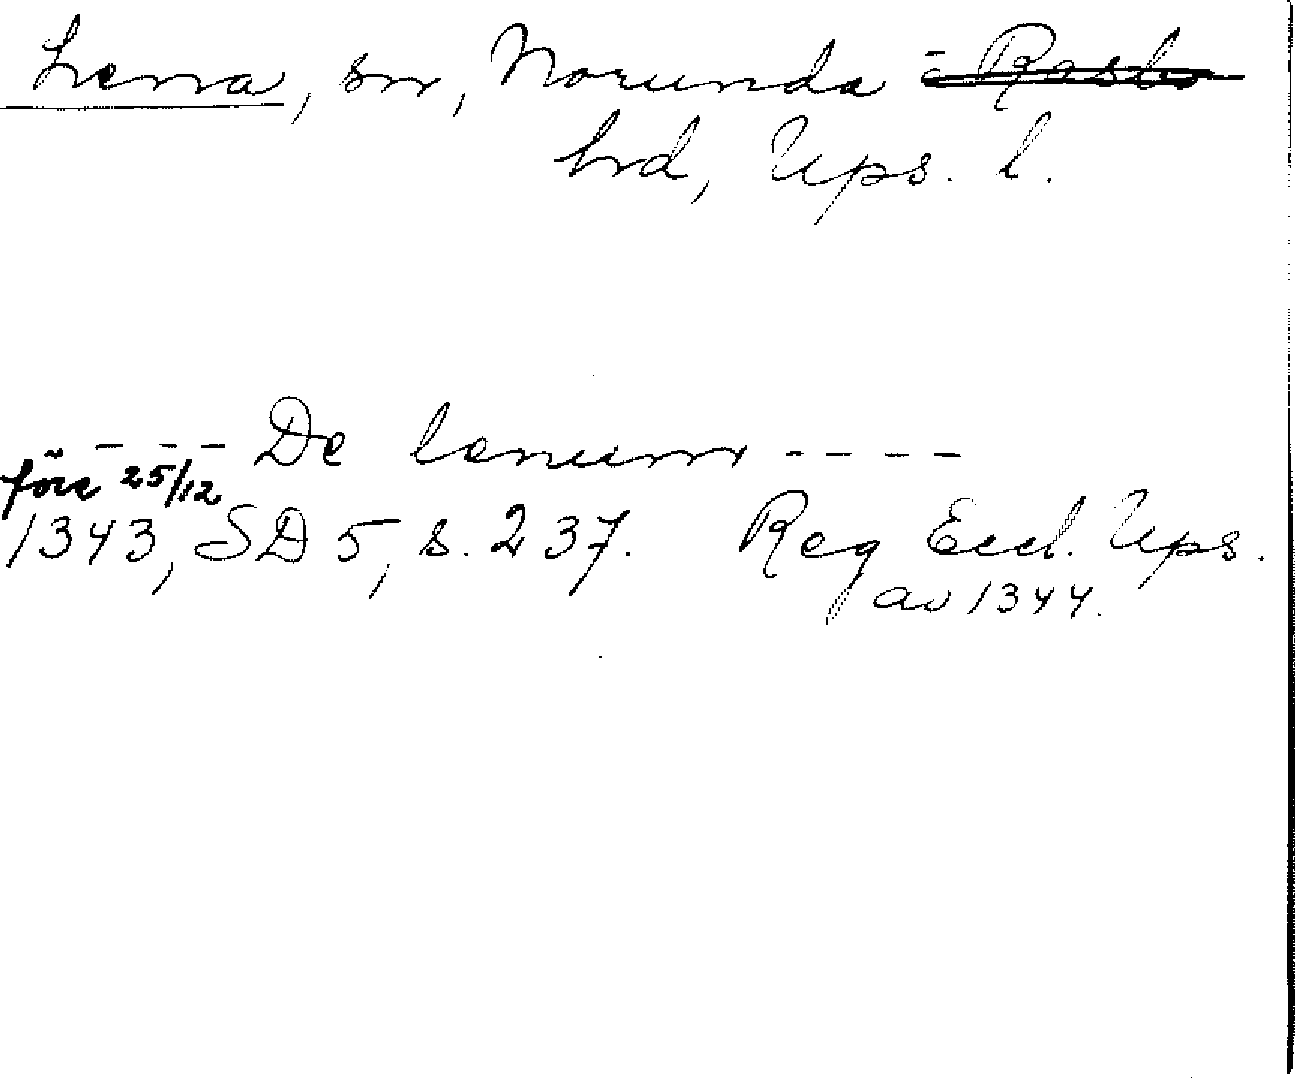 Lena, sn, Norunda
hrd, Ups. l.
- - - De lenum - - - -
före 25/12
1343, SD 5, s. 237. Reg Eccl. Ups.
av 1344.